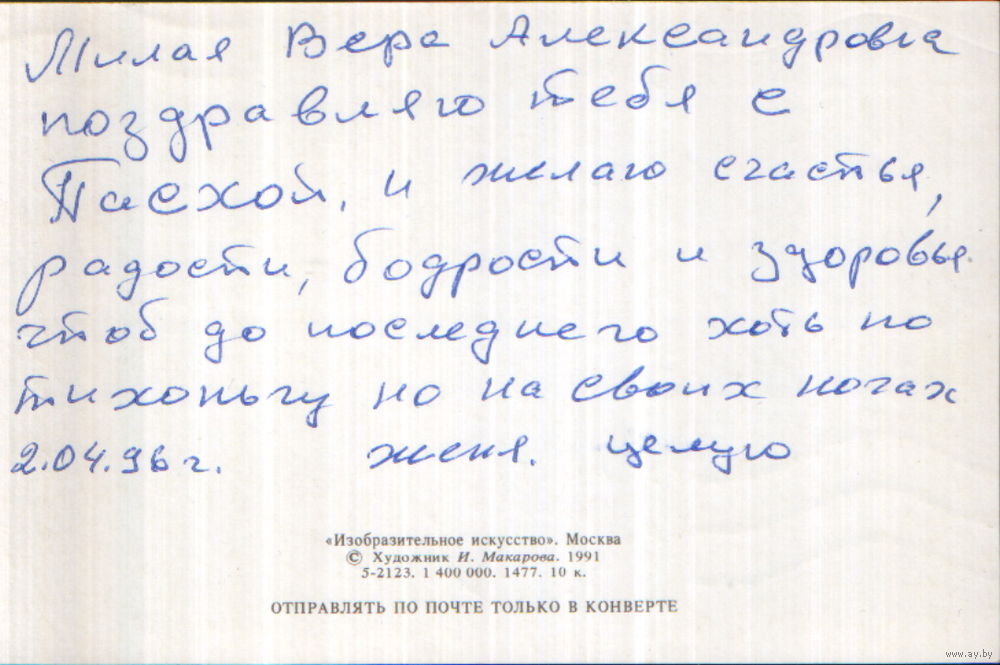 Милая Вера Александровна
поздравляю тебя с
Пасхой, и желаю счастья,
радости, бодрости и здоровья.
чтоб до последнего хоть по
тихоньгу но на своих ногах
2.04.96 г. женя. целую
«Изобразительное искусство». Москва
© Художник И. Макарова. 1991
5-2123. 1 400 000. 1477. 10 к.
ОТПРАВЛЯТЬ ПО ПОЧТЕ ТОЛЬКО В КОНВЕРТЕ
www.ay.by